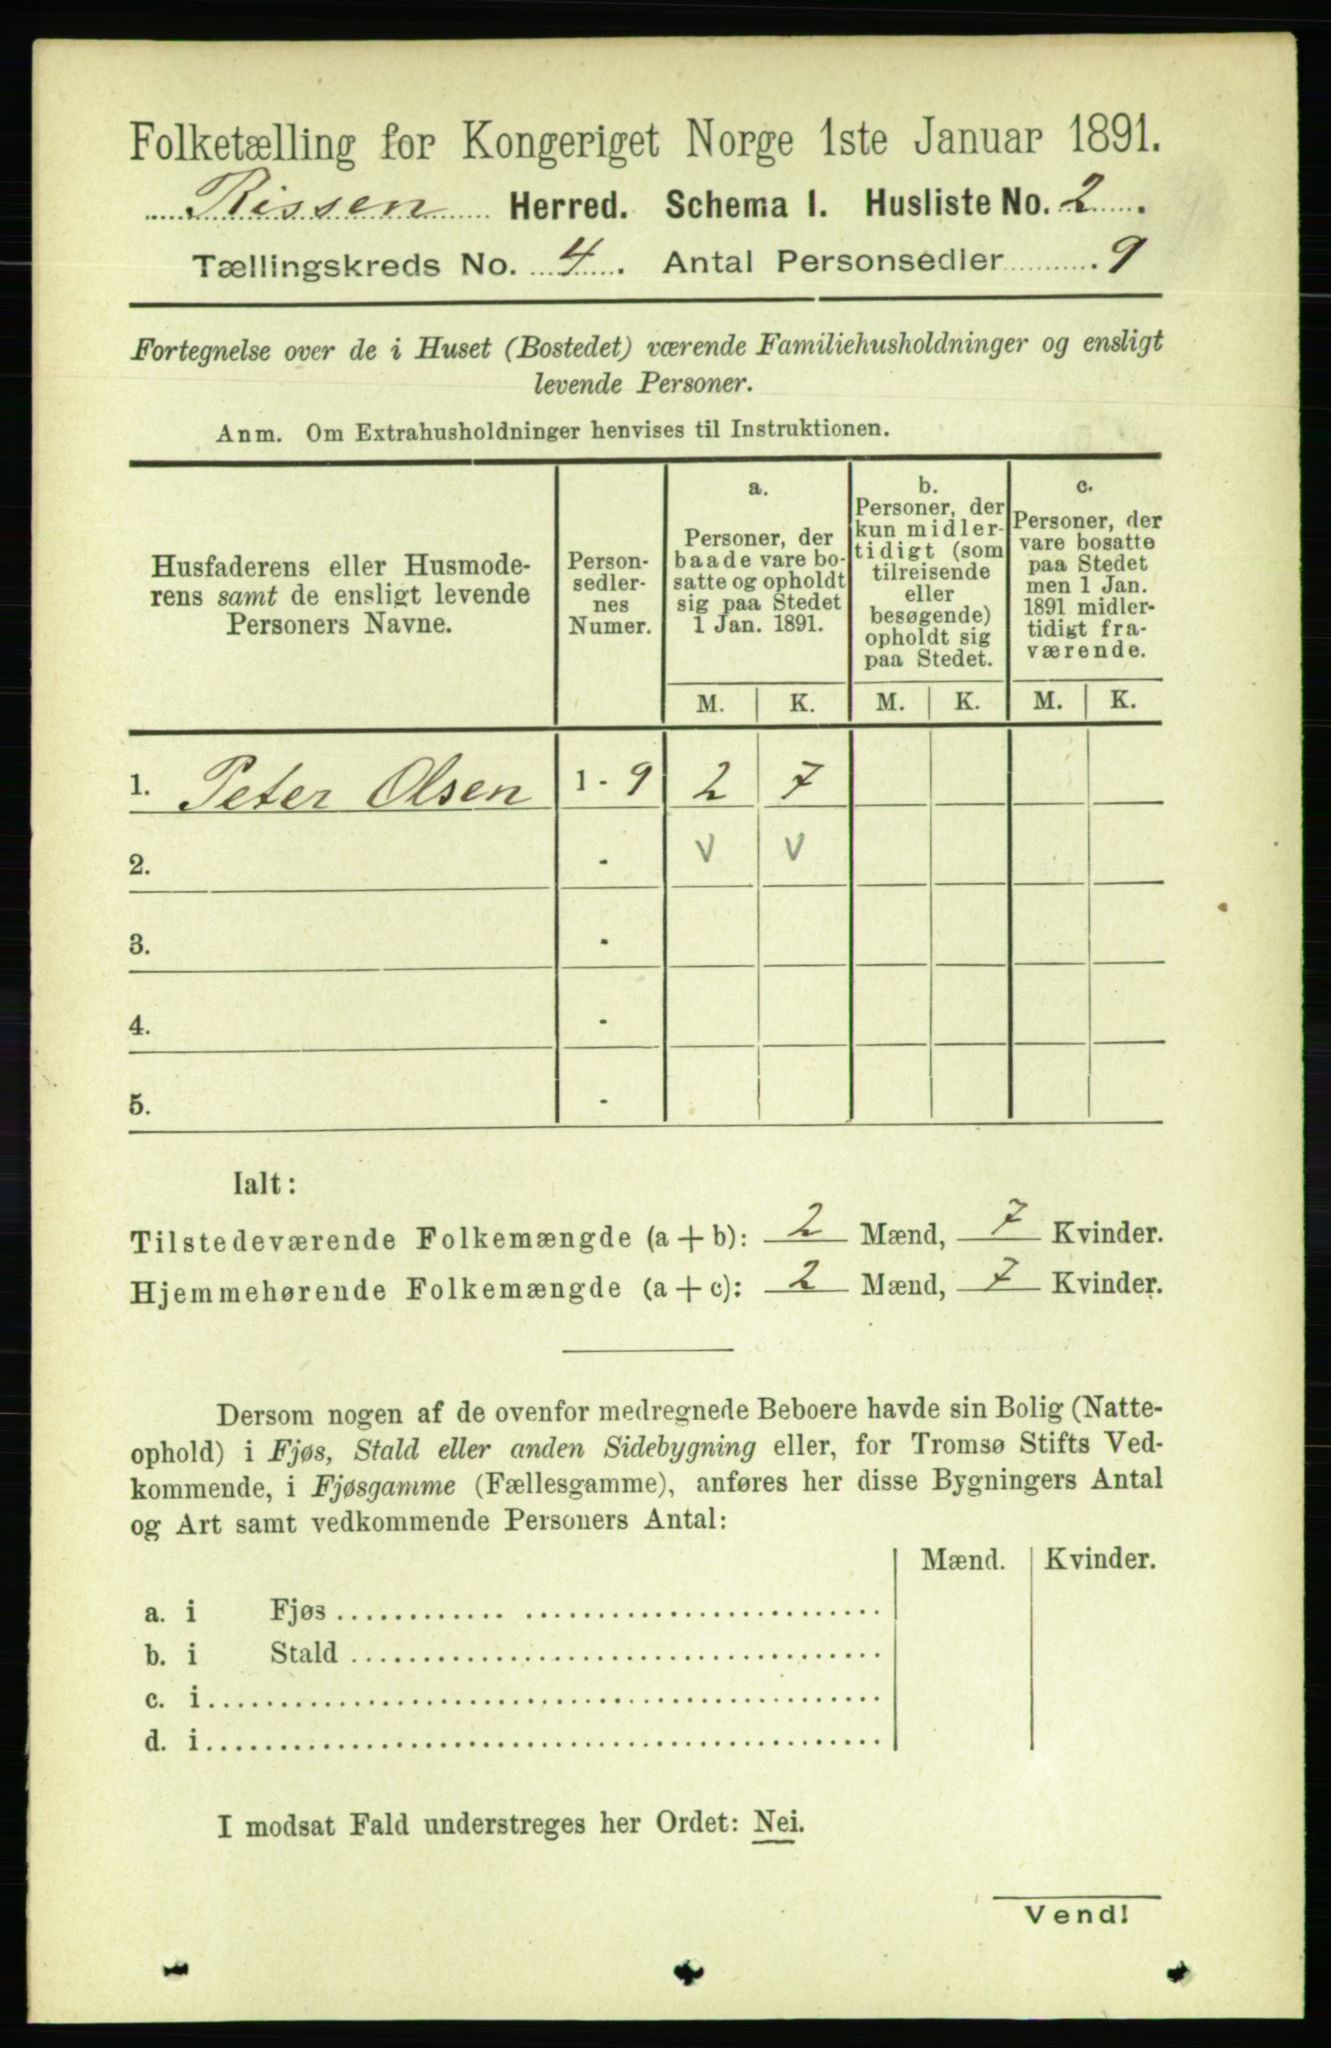 Folketælling for Kongeriget Norge 1ste Januar 1891.
Rissen Herred. Schema I. Husliste No. 2.
Tællingskreds No. 4. Antal Personsedler 9
Fortegnelse over de i Huset (Bostedet) værende Familiehusholdninger og ensligt
levende Personer.
Anm. Om Extrahusholdninger henvises til Instruktionen.
Husfaderens eller Husmode-
rens samt de ensligt levende
Personers Navne.
Person-
sedler-
nes
Numer.
a.
Personer, der
baade vare bo-
satte og opholdt
sig paa Stedet
1 Jan. 1891.
b.
Personer, der
kun midler-
tidigt (som
tilreisende
eller
besøgende)
opholdt sig
paa Stedet.
c.
Personer, der
vare bosatte
paa Stedet
men 1 Jan.
1891 midler-
tidigt fra-
værende.
M. K. M. K. M. K.
1. Peter Olsen 1 - 9 2 7
2. - v v
3. -
4. -
5. -
Ialt:
Tilstedeværende Folkemængde (a + b): 2 Mænd, 7 Kvinder.
Hjemmehørende Folkemængde (a + c): 2 Mænd, 7 Kvinder.
Dersom nogen af de ovenfor medregnede Beboere havde sin Bolig (Natte-
ophold) i Fjøs, Stald eller anden Sidebygning eller, for Tromsø Stifts Ved-
kommende, i Fjøsgamme (Fællesgamme), anføres her disse Bygningers Antal
og Art samt vedkommende Personers Antal:
Mænd. Kvinder.
a. i Fjøs
b. i Stald
c. i
d. i
I modsat Fald understreges her Ordet: Nei.
Vend!